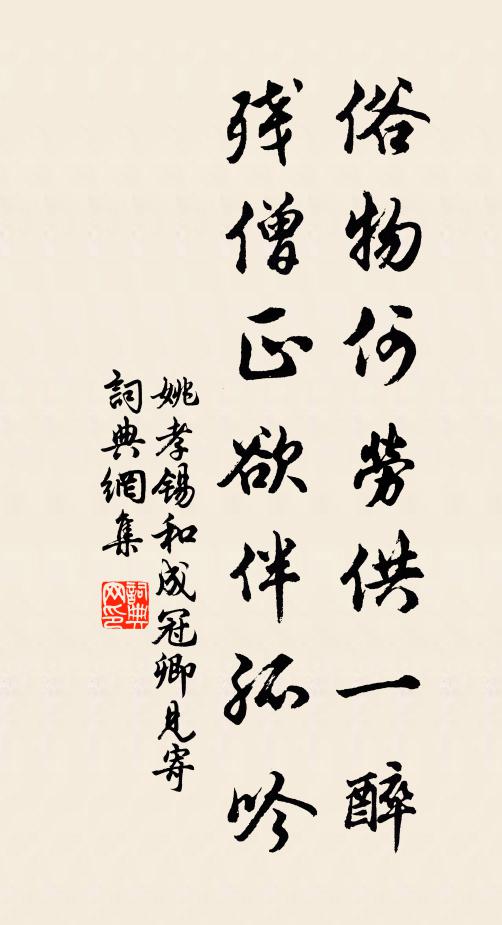 俗物何勞供一醉
殘僧正欲伴孤吟
姚孝錫和成冠卿見寄
詞典網集
詞典网印